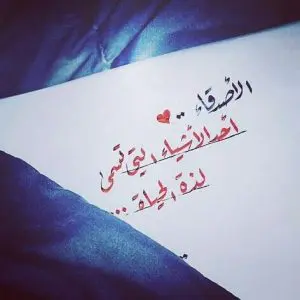 الأصدقاء ..❤
احد الأشياء التي تسمى
لذة الحياة ...